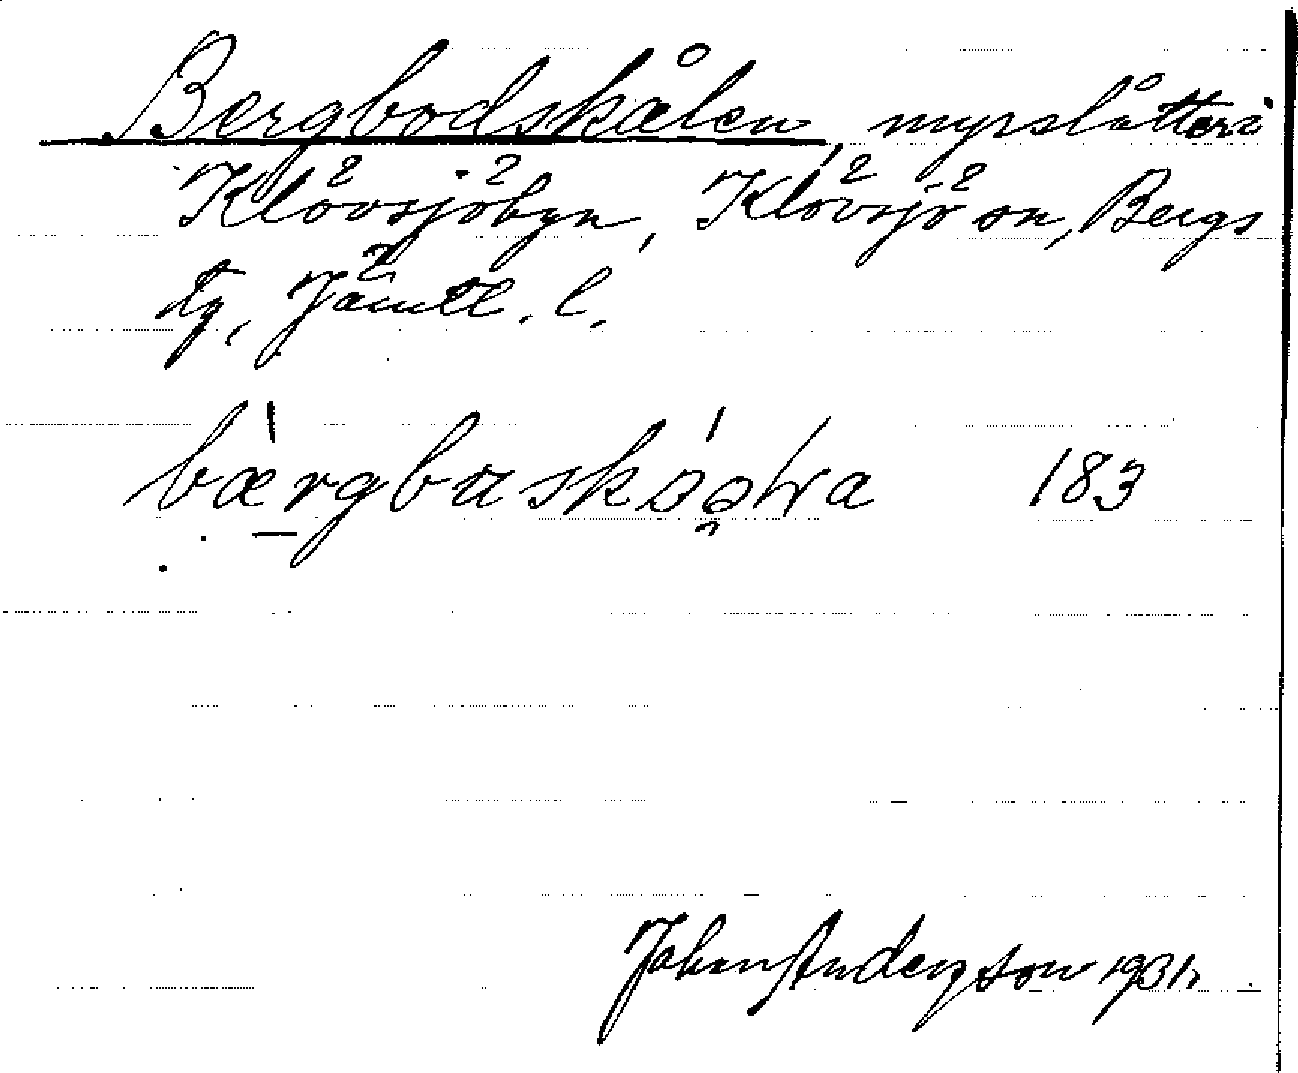 Bergbodskålen, myrslåtter i
Klövsjöbyn, Klövsjö sn, Bergs
tg, Jämtl. l.
183
Johan Anderson 1931.